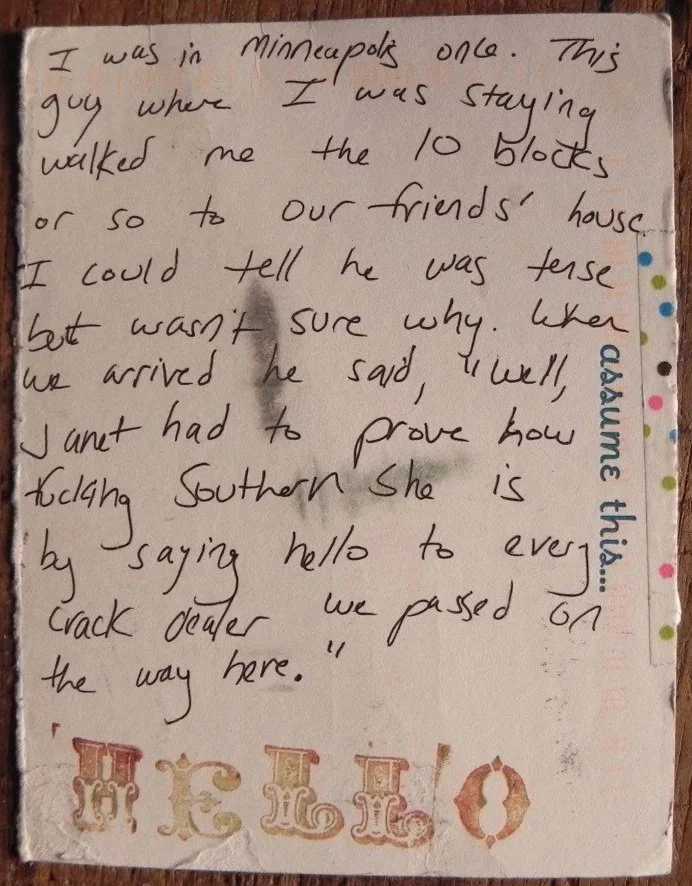 I was in Minneapolis once. This
guy where I was staying
walked me the 10 blocks
or so to our friends' house.
I could tell he was tense
but wasn't sure why. When
we arrived he said, "Well,
Janet had to prove how
fucking Southern she is
by saying hello to every
crack dealer we passed on
the way here."
assume this...
HELLO